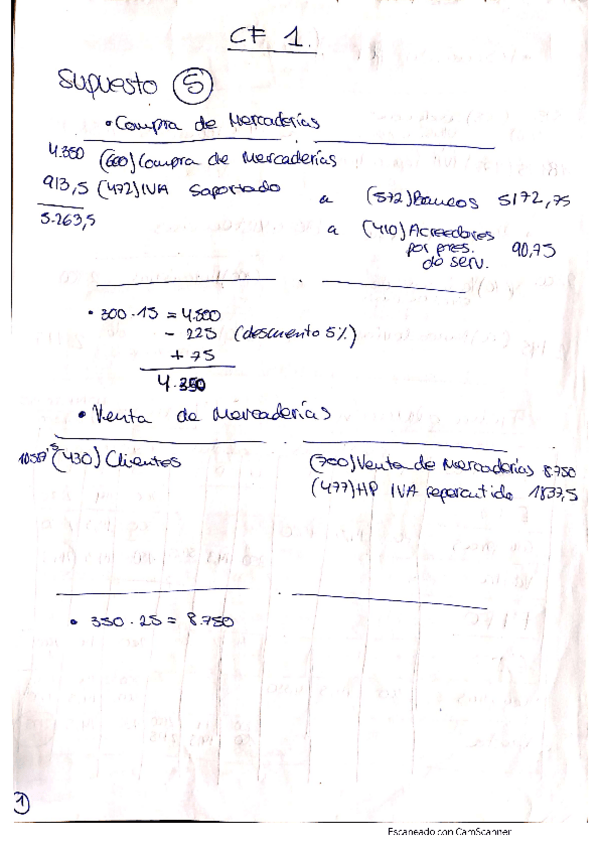 CF 1.
Supuesto 5
• Compra de Mercaderías
4.350 (600) Compra de Mercaderías
913,5 (472) IVA Soportado a (572) Bancos 5172,75
5.263,5 a (410) Acreedores
por pres. 90,75
do serv.
• 300 · 15 = 4.500
- 225 (descuento 5%)
+ 75
4.350
• Venta de Mercaderías
(430) Clientes (700) Venta de Mercaderías 8.750
(477) HP IVA repercutido 1837,5
• 350 · 25 = 8.750
1
Escaneado con CamScanner